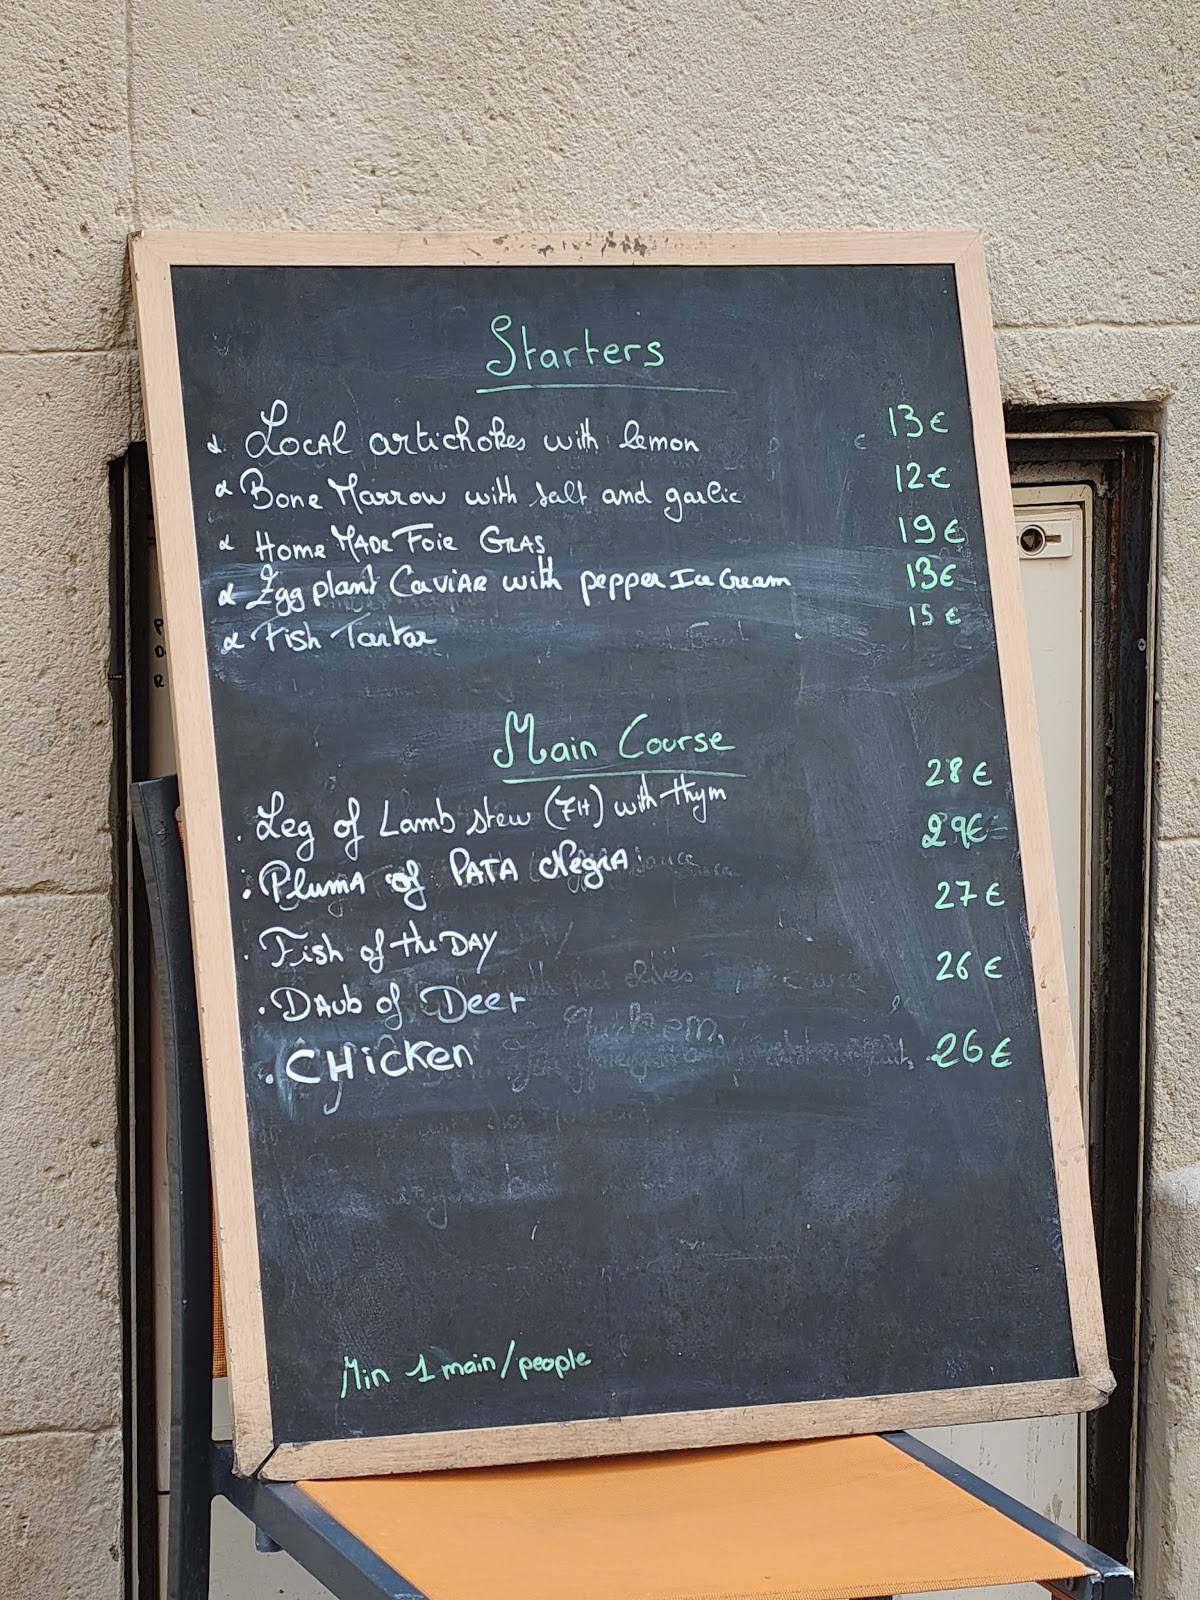 Starters
Local artichokes with lemon 13€
Bone Marrow with salt and garlic 12€
Home Made Foie Gras 19€
Egg plant Caviar with pepper Ice Cream 13€
Fish Tartar 15€
Main Course
Leg of Lamb stew (7H) with thym 28€
Pluma of PATA Negra 29€
Fish of the DAY 27€
Daub of Deer 26€
CHicken 26€
Min 1 main/people
P
D
R